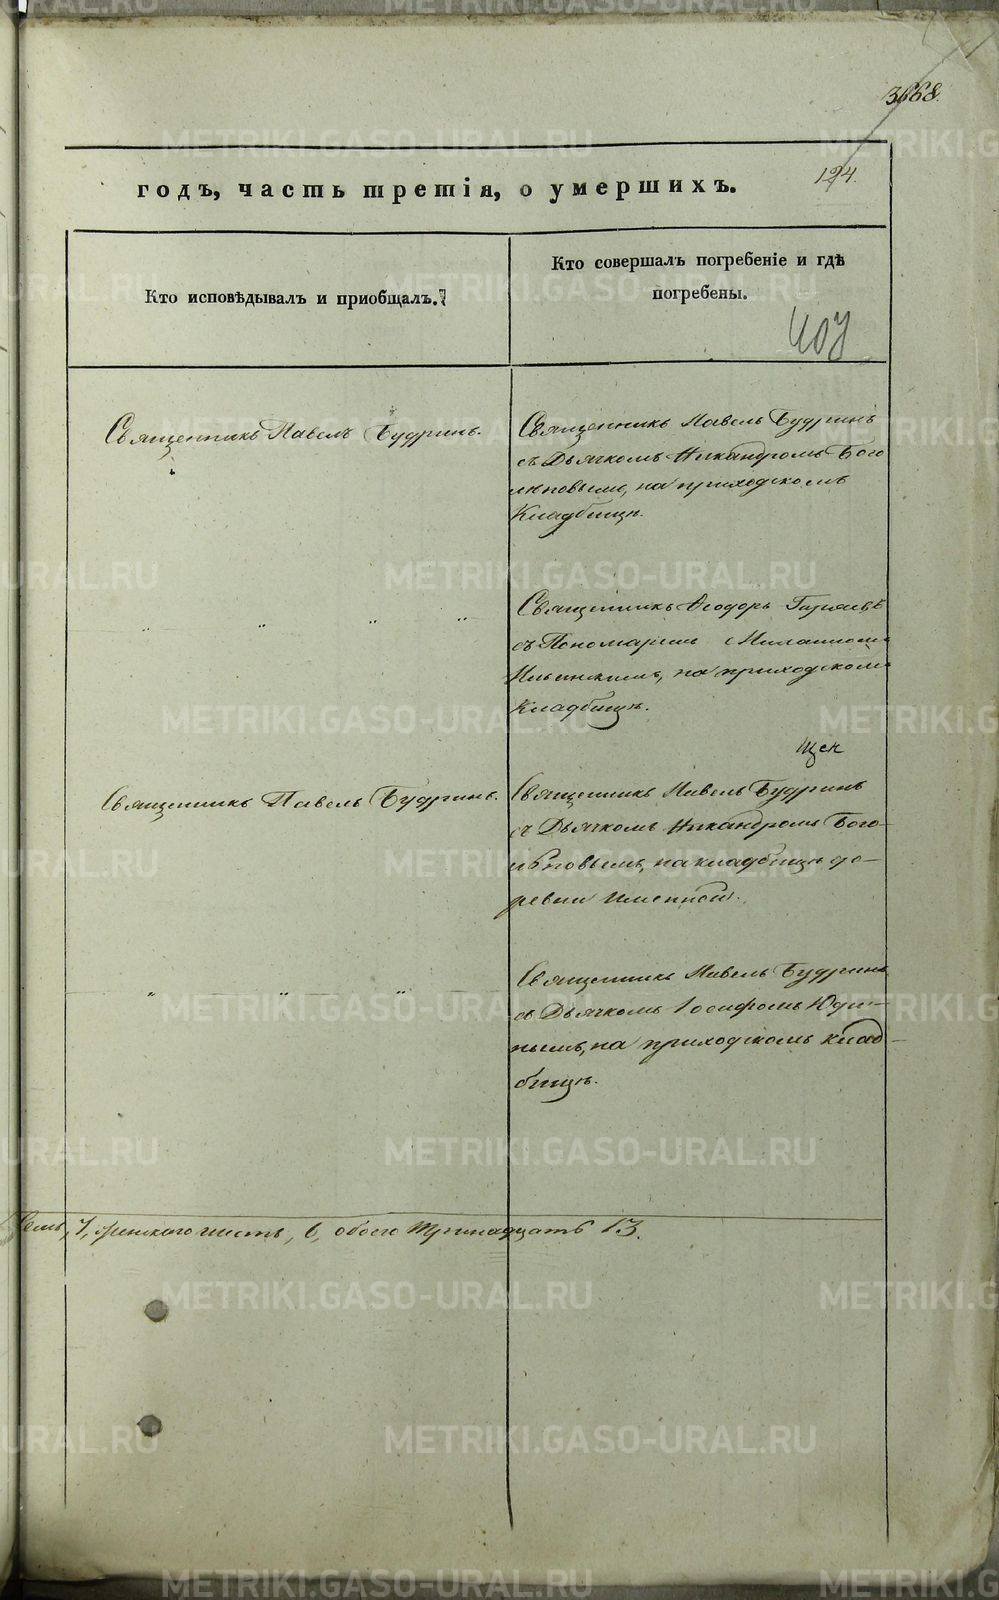 3668.
124.
годъ, часть третія, о умершихъ.
Кто исповѣдывалъ и приобщалъ.
Кто совершалъ погребеніе и гдѣ
погребены.
Священникъ Павелъ Будринъ.
Священникъ Павелъ Будринъ
съ Дьячкомъ Никандромъ Бого
на приходскомъ
Кладбищѣ.
" " " "
Священникъ Ѳеодоръ
съ Пономаремъ
Ильинскимъ, на приходскомъ
Кладбищѣ.
Священникъ Павелъ Будринъ.
Священникъ Павелъ Будринъ
съ Дьячкомъ Никандромъ Бого-
на кладбищѣ де-
ревни Именной.
" " "
Священникъ Павелъ Будринъ
съ Дьячкомъ Іосифомъ Юди-
нымъ, на приходскомъ клад-
бищѣ.
семь, 7, женского шесть, 6, обоего тринадцать 13.
METRIKI.GASO-URAL.RU